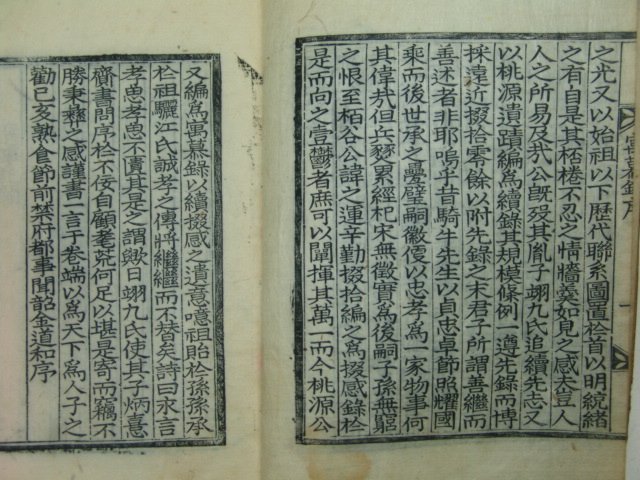 之光又以始祖以下歷代聯系圖置於首以明統緒
之有自是其桮棬不忍之情牆羹如見之感夫豈人
人之所易及哉公旣歿其胤子翊九氏追續先志又
以桃源遺蹟編爲續錄其規模條例一遵先錄而博
採遠近掇拾零餘以附先錄之末君子所謂善繼而
善述者非耶嗚乎昔騎牛先生以貞忠卓節照耀國
乘而後世承之疊璧嗣徽優以忠孝爲一家物事何
其偉哉但兵燹累經杞宋無徵實爲後嗣子孫無窮
之恨至栢谷公諱之運辛勤掇拾編之爲掇感錄於
是而向之壹鬱者庶可以闡揮其萬一而今桃源公
慕錄序
一
又編爲寓慕錄以續掇感之遺意噫祖貽於孫孫承
於祖驪江氏誠孝之傳將繼繼而不替矣詩曰永言
孝思孝思不匱其是之謂歟日翊九氏使其子炳意
齎書問序於不佞自顧耄荒何足以堪是寄而竊不
勝秉彝之感謹書一言于卷端以爲天下爲人子之
勸已亥熟食節前禁府都事聞韶金道和序